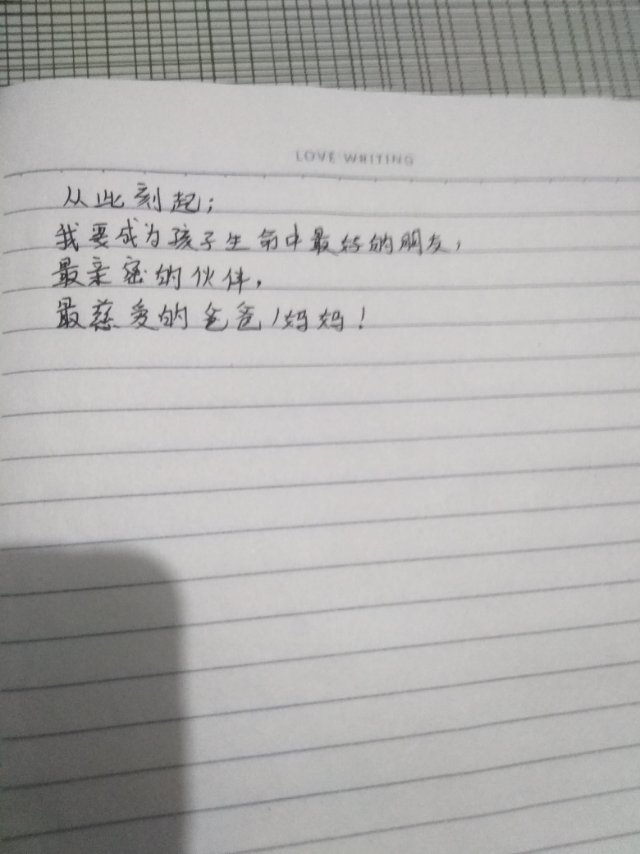 LOVE WRITING
从此刻起；
我要成为孩子生命中最好的朋友，
最亲密的伙伴，
最慈爱的爸爸/妈妈！